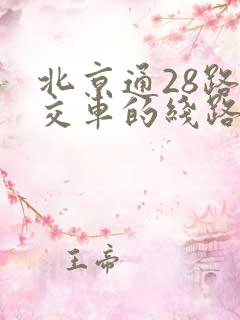 北京通28路
交车的线路
王帝